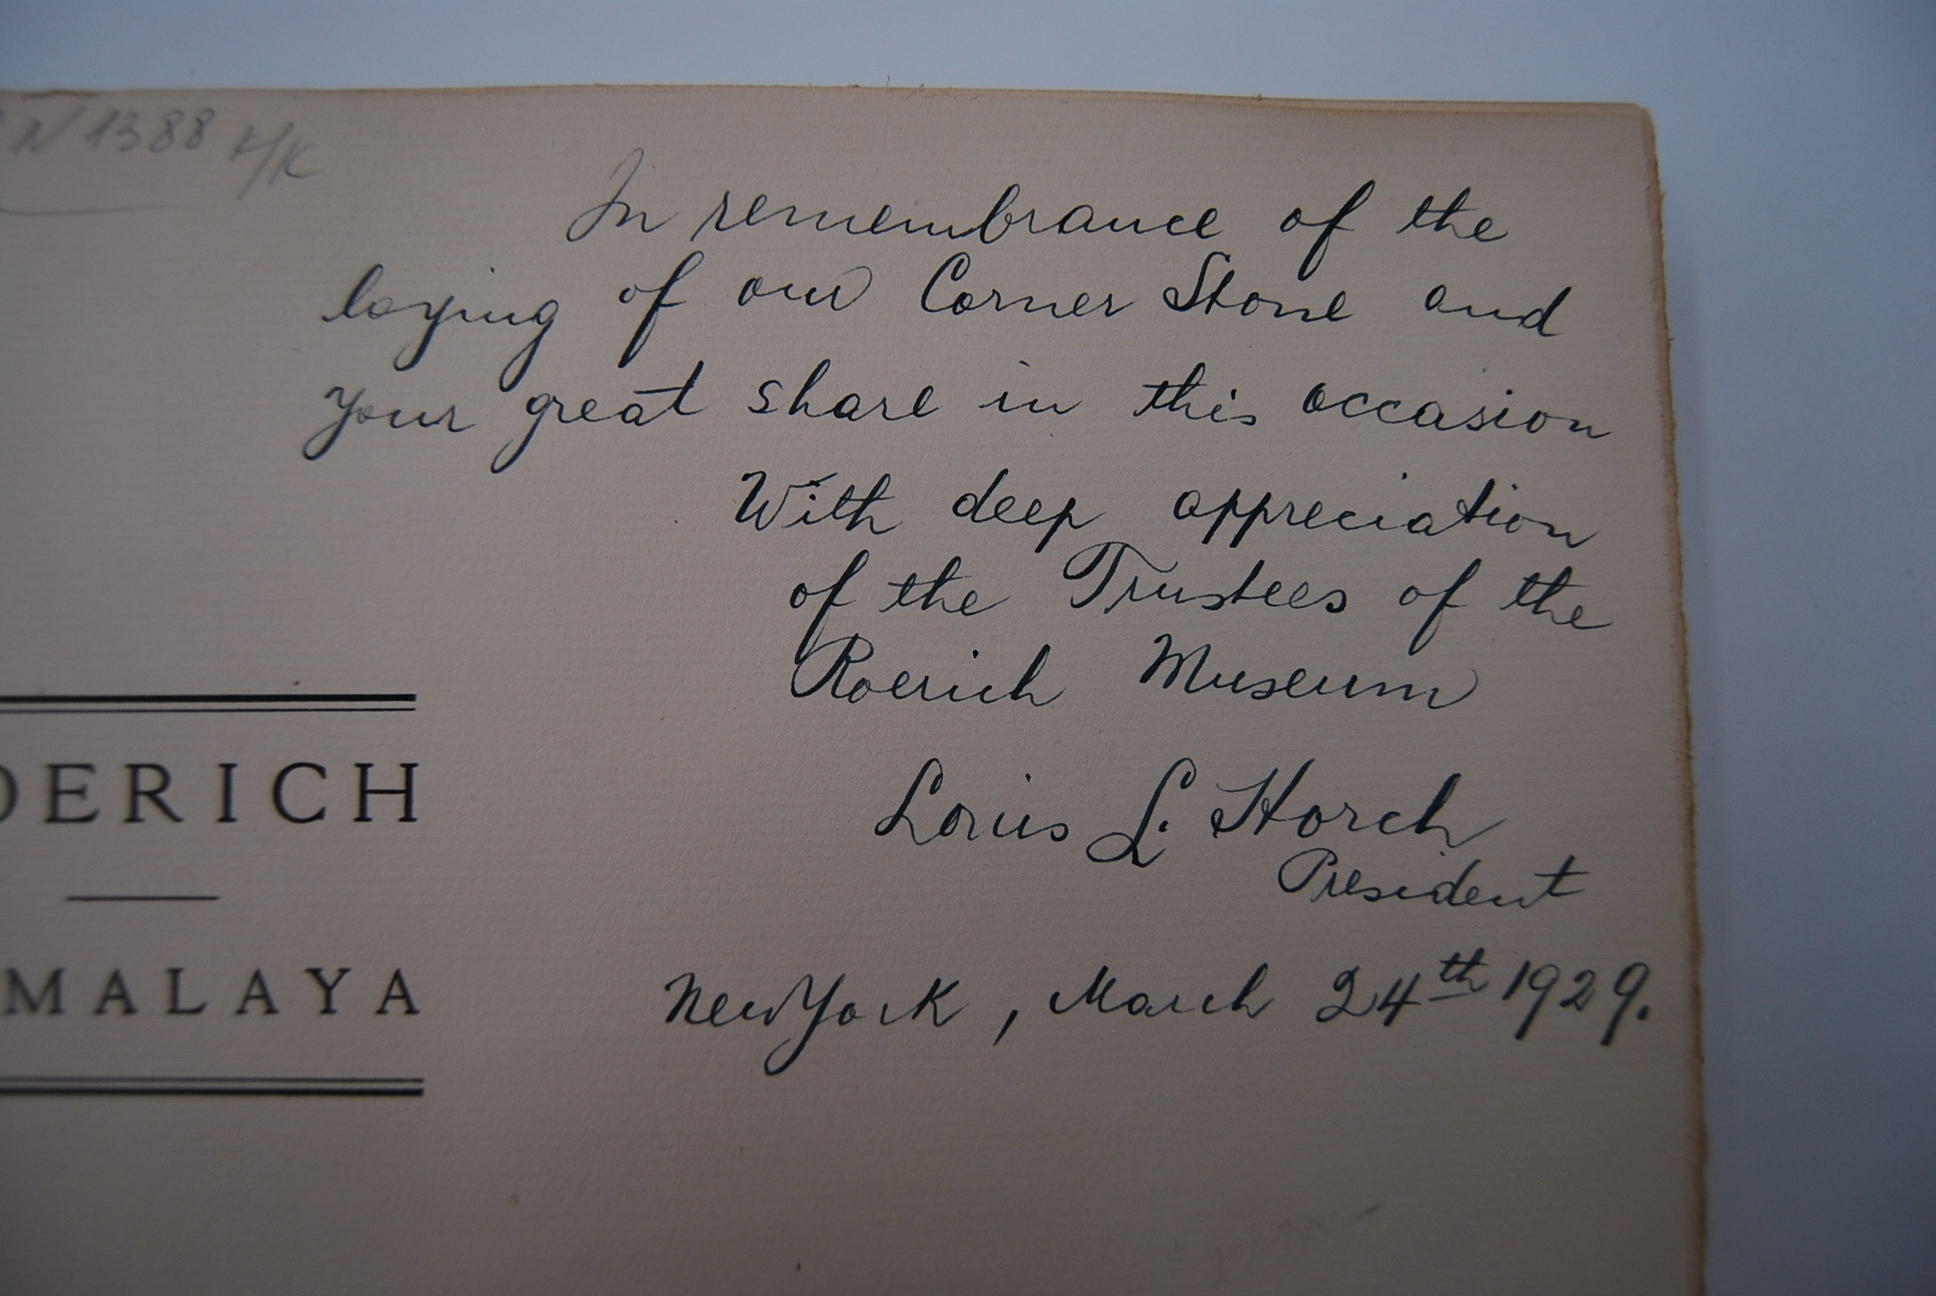 N 1388
In remembrance of the
laying of our Corner Stone and
your great share in this occasion
With deep appreciation
of the Trustees of the
Roerich Museum
Louis L. Horch
President
New York, March 24th 1929.
OERICH
MALAYA